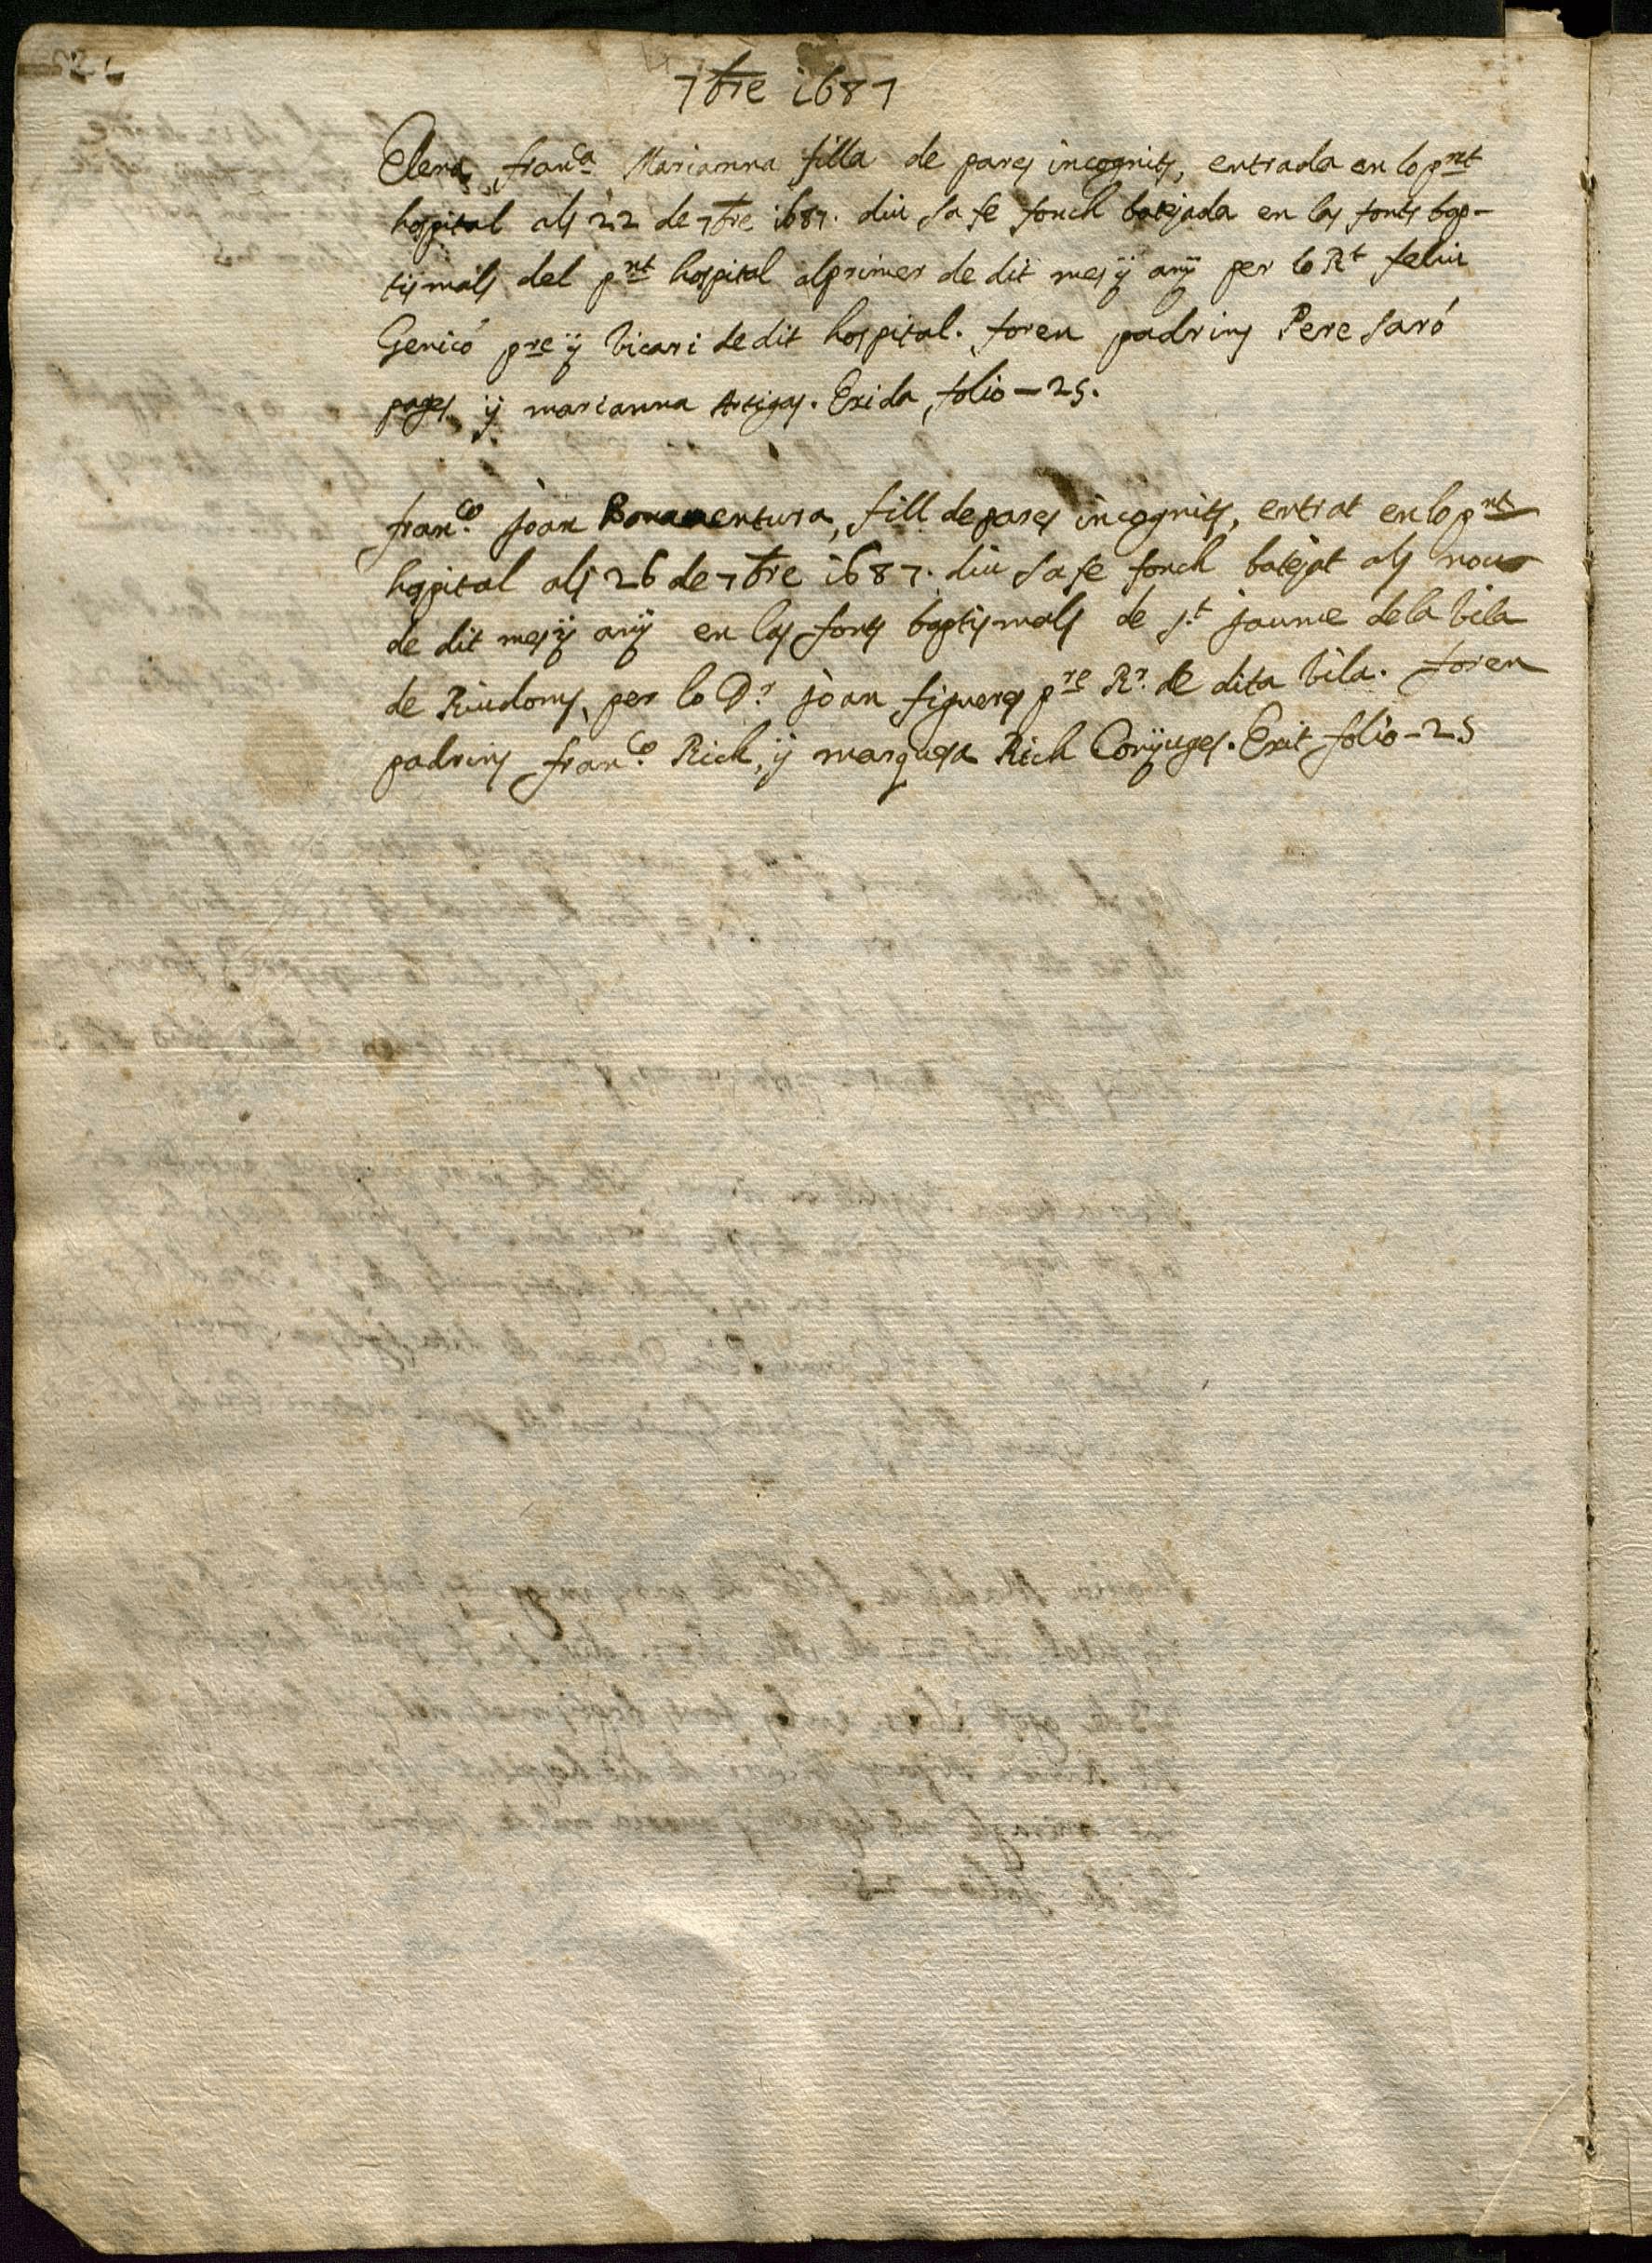 7bre 1687
Elena, fran.ca Marianna filla de pares incognits, entrada en lo pnt
hospital als 22 de 7bre 1687. diu sa fe fonch batejada en las fonts bap-
tismals del pnt hospital al primer de dit mes ÿ anÿ per lo Rt feliu
Genicó pre ÿ Vicari de dit hospital. foren padrins Pere Saró
pages, ÿ marianna Artigas. Exida, folio - 25.
fran.co joan Bonaventura, fill de pares incognits, entrat en lo pnt
hospital als 26 de 7bre 1687. diu sa fe fonch batejat als nou
de dit mes ÿ anÿ en las fonts baptismals de s.t jaume de la Vila
de Riudoms, per lo D.r joan figueres pre R.r de dita Vila. foren
padrins fran.co Rich, ÿ marquesa Rich Conÿuges. Exit folio - 25